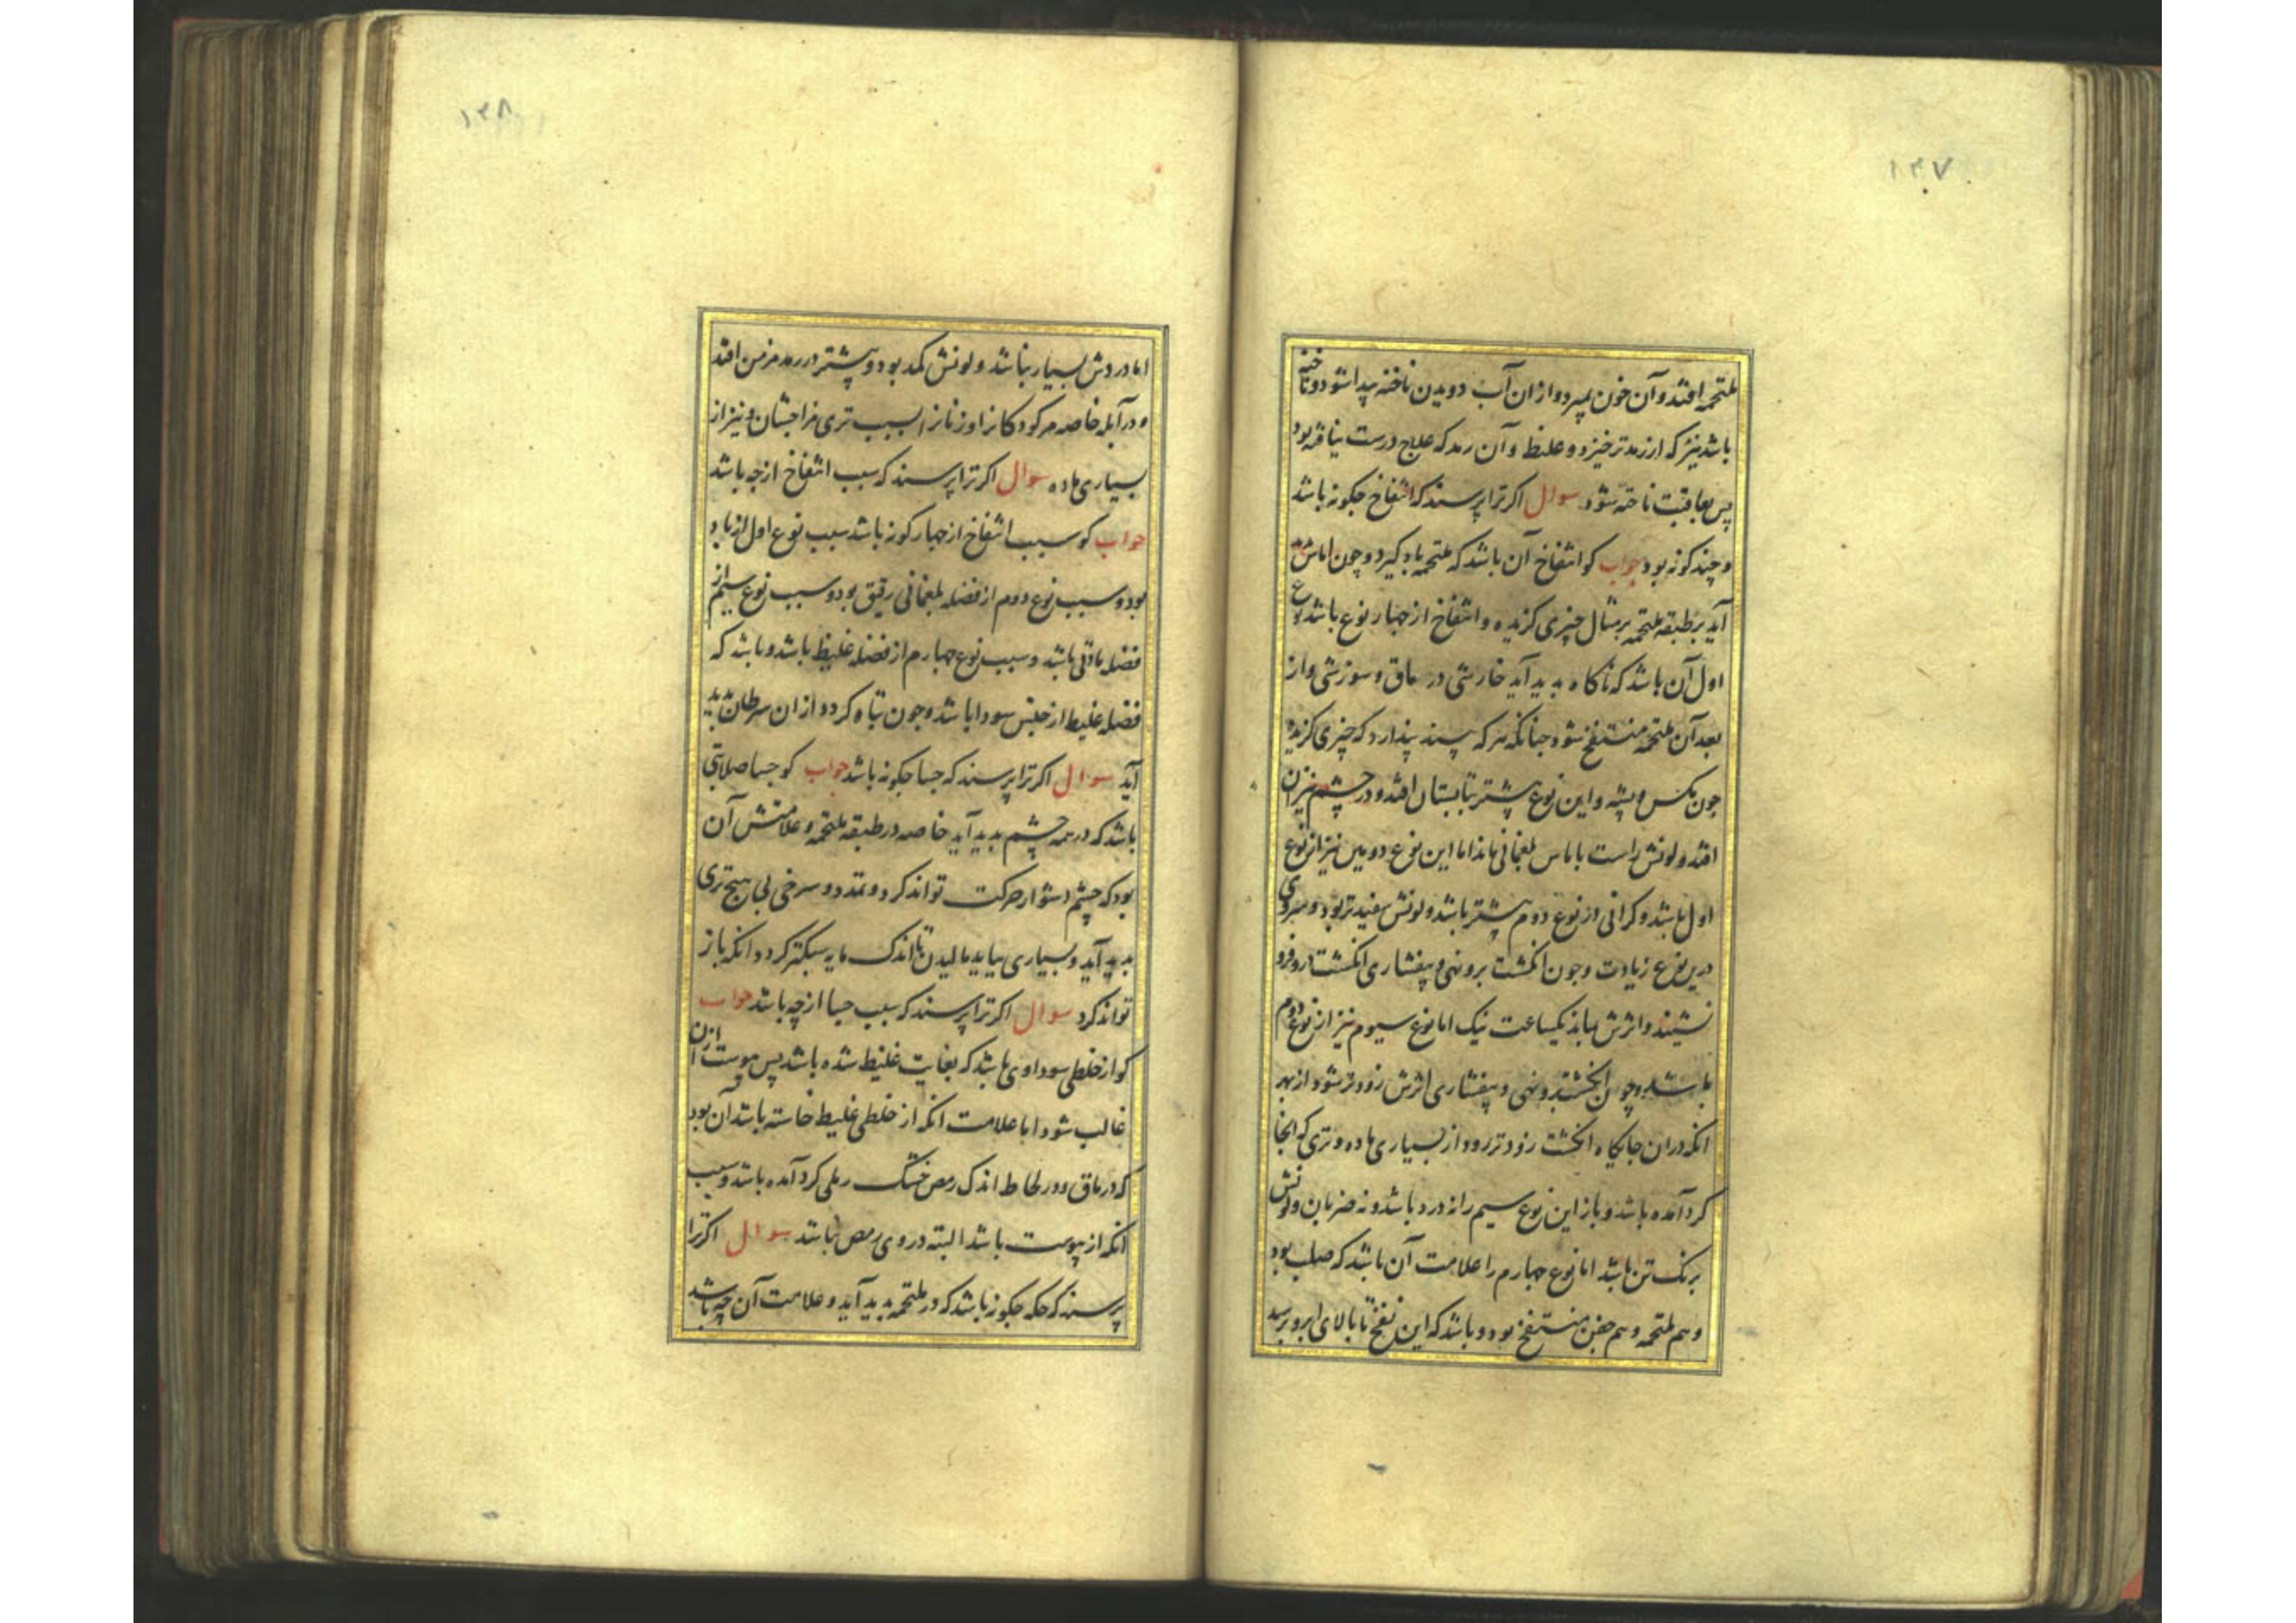 ۱۴۷
ملتحمه افتد و آن خون بمیرد و ازان آب دویدن ناخنه پیدا شود و ناخنه
باشد نیز که از رمد تر خیزد و غلیظ و آن رمد که علاج درست نیافته بود
پس بعاقبت ناخنه شود سوال اکر ترا پرسند که انتفاخ جکونه باشد
و چند کونه بود جواب کو انتفاخ آن باشد که ملتحمه باد کیرد و چون اماس
آید بر طبقه ملتحمه بر مثال چیزی کزیده و انتفاخ از جهار نوع باشد نوع
اول آن باشد که ناکاه بدید آید خارشی در ماق و سوزشی و از
بعد آن ملتحمه منتفخ شود جنانکه هر که بیند پندارد که چیزی کزیده
جون مکس و پشه و این نوع بیشتر بتابستان افتد و در چشم
افتد و لونش راست باماس بلغمانی ماند اما این نوع دویین نیز از نوع
اول باشد و کرانی در نوع دوم بیشتر باشد و لونش سفیدتر بود و سردی
درین نوع زیادت و جون انکشت برو نهی و بیفشاری انکشت درو فرو
نشیند و اثرش بماند یکساعت نیک اما نوع سیوم نیز از نوع دوم
باشد و چون انکشت برو نهی و بیفشاری اثرش زودتر شود از بهر
انکه دران جایکاه انکشت زودتر رود از بسیاری ماده و تری که انجا
کرد آمده باشد و باز این نوع سیم را نه درد باشد و نه ضربان و لونش
برنک تن باشد اما نوع جهارم را علامت آن باشد که صلب بود
و هم ملتحمه و هم جفن منتفخ بود و باشد که این نفخ تا بالای ابرو برسد
۱۴۸
اما دردش بسیار نباشد و لونش کمد بود و بیشتر در رمد مزمن افتد
و در آبله خاصه مر کودکانرا و زنانرا بسبب تری مزاجشان و نیز از
بسیاری ماده سوال اکر ترا پرسند که سبب انتفاخ ازچه باشد
جواب کو سبب انتفاخ از جهار کونه باشد سبب نوع اول از باد
بود و سبب نوع دوم از فضله بلغمانی رقیق بود و سبب نوع سیم از
فضله باشد و سبب نوع جهارم از فضله غلیظ باشد و باشد که
فضله غلیظ از جنس سودا باشد و جون تباه کردد ازان سرطان بدید
آید سوال اکر ترا پرسند که جسا جکونه باشد جواب کو جسا صلابتی
باشد که در همه چشم بدید آید خاصه در طبقه ملتحمه و علامتش آن
بود که چشم دشوار حرکت تواند کرد و تمدد و سرخی بی هیچ تری
بدید آید و بسیاری بباید مالیدن تا اندک مایه سبکتر کردد انکه باز
تواند کرد سوال اکر ترا پرسند که سبب جسا ازچه باشد جواب
کو از خلطی سوداوی باشد که بغایت غلیظ شده باشد پس یبوست ازان
غالب شود اما علامت انکه از خلطی غلیظ خاسته باشد آن بود
که در ماق و در لحاظ اندک رمص خشک رملی کرد آمده باشد و سبب
انکه از یبوست باشد البته در وی رمص نباشد سوال اکر ترا
پرسند که حکه جکونه باشد که در ملتحمه بدید آید و علامت آن چه باشد